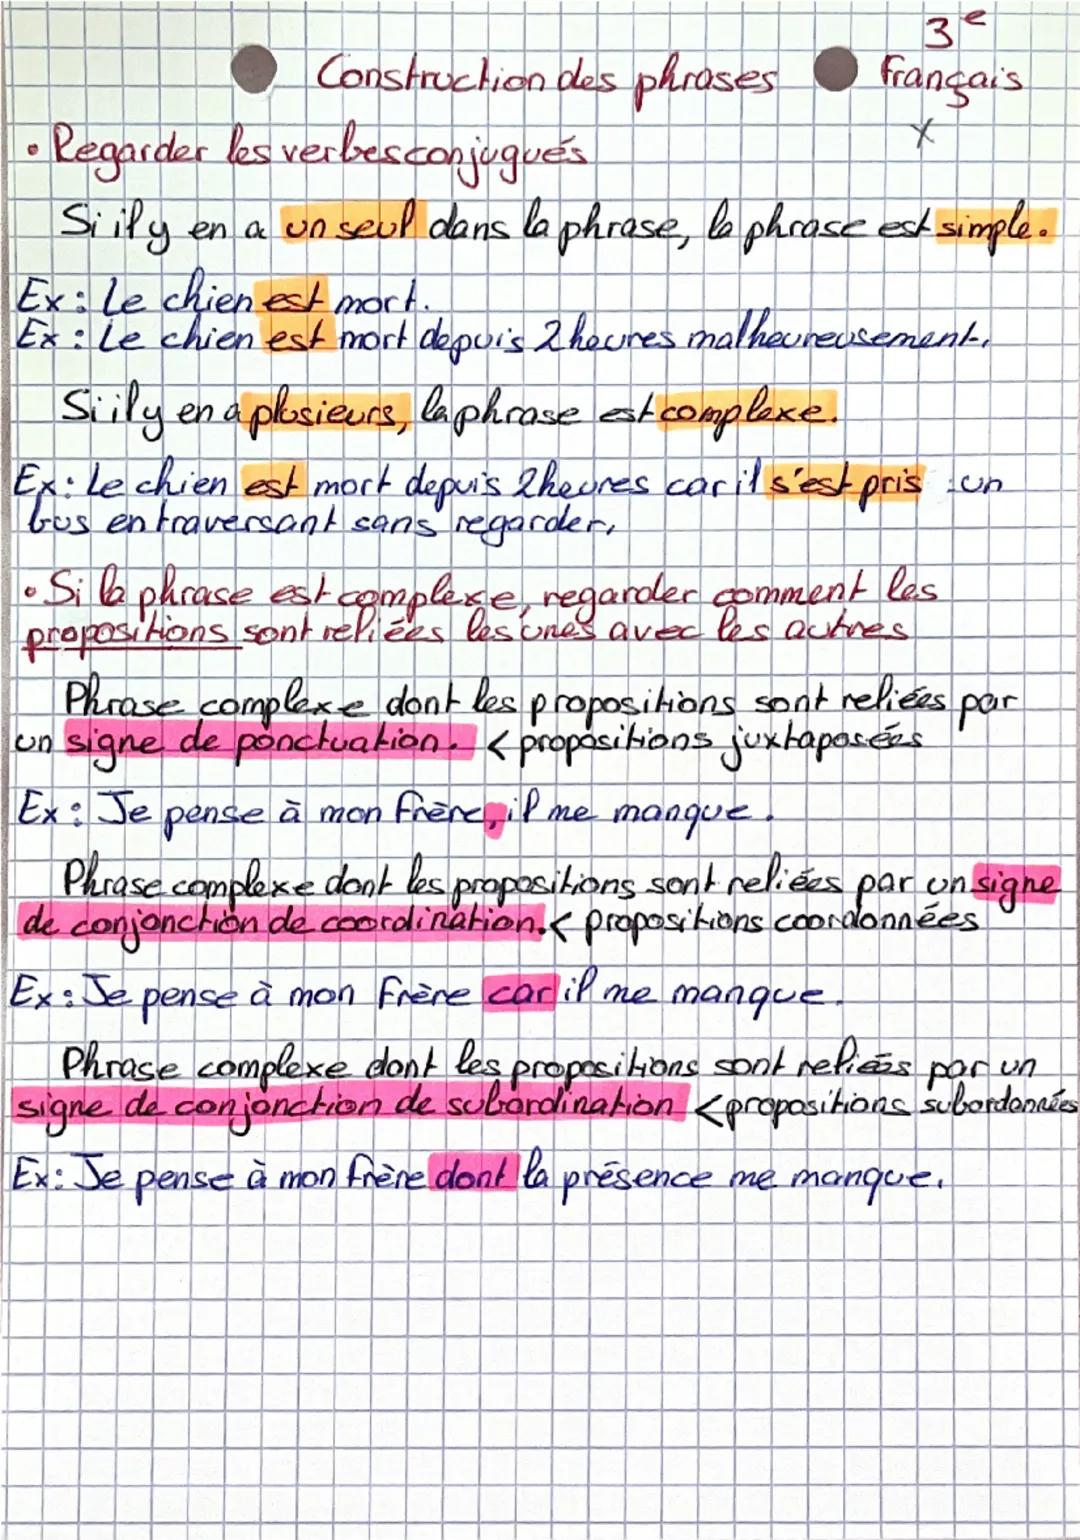 3e
Construction des phrases
Français
x
• Regarder les verbes conjugués
Si il y en a un seul dans la phrase, la phrase est simple.
Ex : Le chien est mort.
Ex : Le chien est mort depuis 2 heures malheureusement.
Si il y en a plusieurs, la phrase est complexe.
Ex : Le chien est mort depuis 2 heures car il s'est pris un
bus en traversant sans regarder.
• Si la phrase est complexe, regarder comment les
propositions sont reliées les unes avec les autres
Phrase complexe dont les propositions sont reliées par
un signe de ponctuation. < propositions juxtaposées
Ex : Je pense à mon frère, il me manque.
Phrase complexe dont les propositions sont reliées par un signe
de conjonction de coordination. < propositions coordonnées
Ex : Je pense à mon frère car il me manque.
Phrase complexe dont les propositions sont reliées par un
signe de conjonction de subordination < propositions subordonnées
Ex : Je pense à mon frère dont la présence me manque.